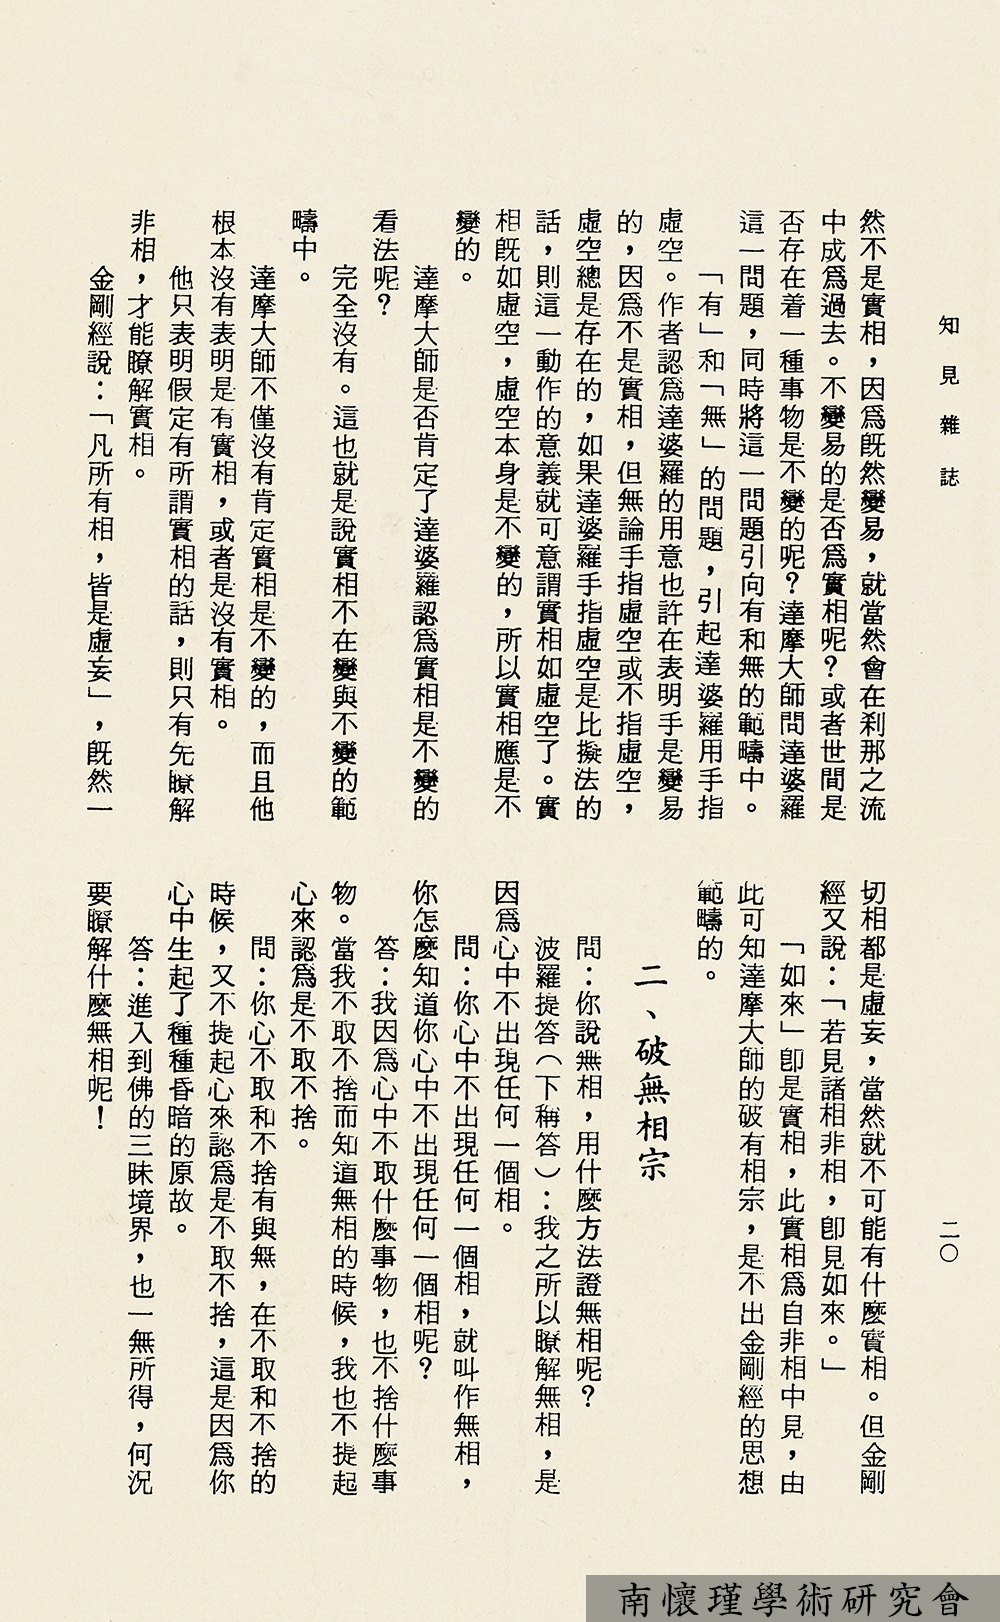 知見雜誌
二〇
然不是實相，因爲旣然變易，就當然會在刹那之流
中成爲過去。不變易的是否爲實相呢？或者世間是
否存在着一種事物是不變的呢？達摩大師問達婆羅
這一問題，同時將這一問題引向有和無的範疇中。
「有」和「無」的問題，引起達婆羅用手指
虛空。作者認爲達婆羅的用意也許在表明手是變易
的，因爲不是實相，但無論手指虛空或不指虛空，
虛空總是存在的，如果達婆羅手指虛空是比擬法的
話，則這一動作的意義就可意謂實相如虛空了。實
相旣如虛空，虛空本身是不變的，所以實相應是不
變的。
達摩大師是否肯定了達婆羅認爲實相是不變的
看法呢？
完全沒有。這也就是說實相不在變與不變的範
疇中。
達摩大師不僅沒有肯定實相是不變的，而且他
根本沒有表明是有實相，或者是沒有實相。
他只表明假定有所謂實相的話，則只有先瞭解
非相，才能瞭解實相。
金剛經說：「凡所有相，皆是虛妄」，旣然一
切相都是虛妄，當然就不可能有什麼實相。但金剛
經又說：「若見諸相非相，卽見如來。」
「如來」卽是實相，此實相爲自非相中見，由
此可知達摩大師的破有相宗，是不出金剛經的思想
範疇的。
二、破無相宗
問：你說無相，用什麼方法證無相呢？
波羅提答（下稱答）：我之所以瞭解無相，是
因爲心中不出現任何一個相。
問：你心中不出現任何一個相，就叫作無相，
你怎麼知道你心中不出現任何一個相呢？
答：我因爲心中不取什麼事物，也不捨什麼事
物。當我不取不捨而知道無相的時候，我也不提起
心來認爲是不取不捨。
問：你心不取和不捨有與無，在不取和不捨的
時候，又不提起心來認爲是不取不捨，這是因爲你
心中生起了種種昏暗的原故。
答：進入到佛的三昧境界，也一無所得，何況
要瞭解什麼無相呢！
南懷瑾學術研究會